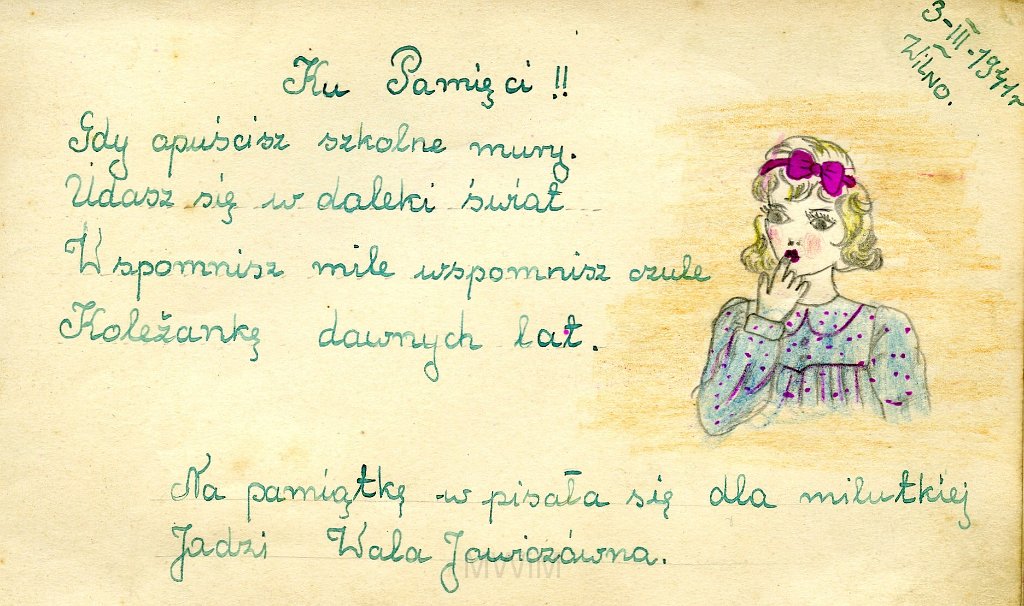 3-III-1941r
Wilno.
Ku Pamięci!!
Gdy opuścisz szkolne mury.
Udasz się w daleki świat
Wspomnisz mile wspomnisz czule
Koleżankę dawnych lat.
Na pamiątkę w pisała się dla milutkiej
Jadzi Wala Jawiczówna.
MWIM